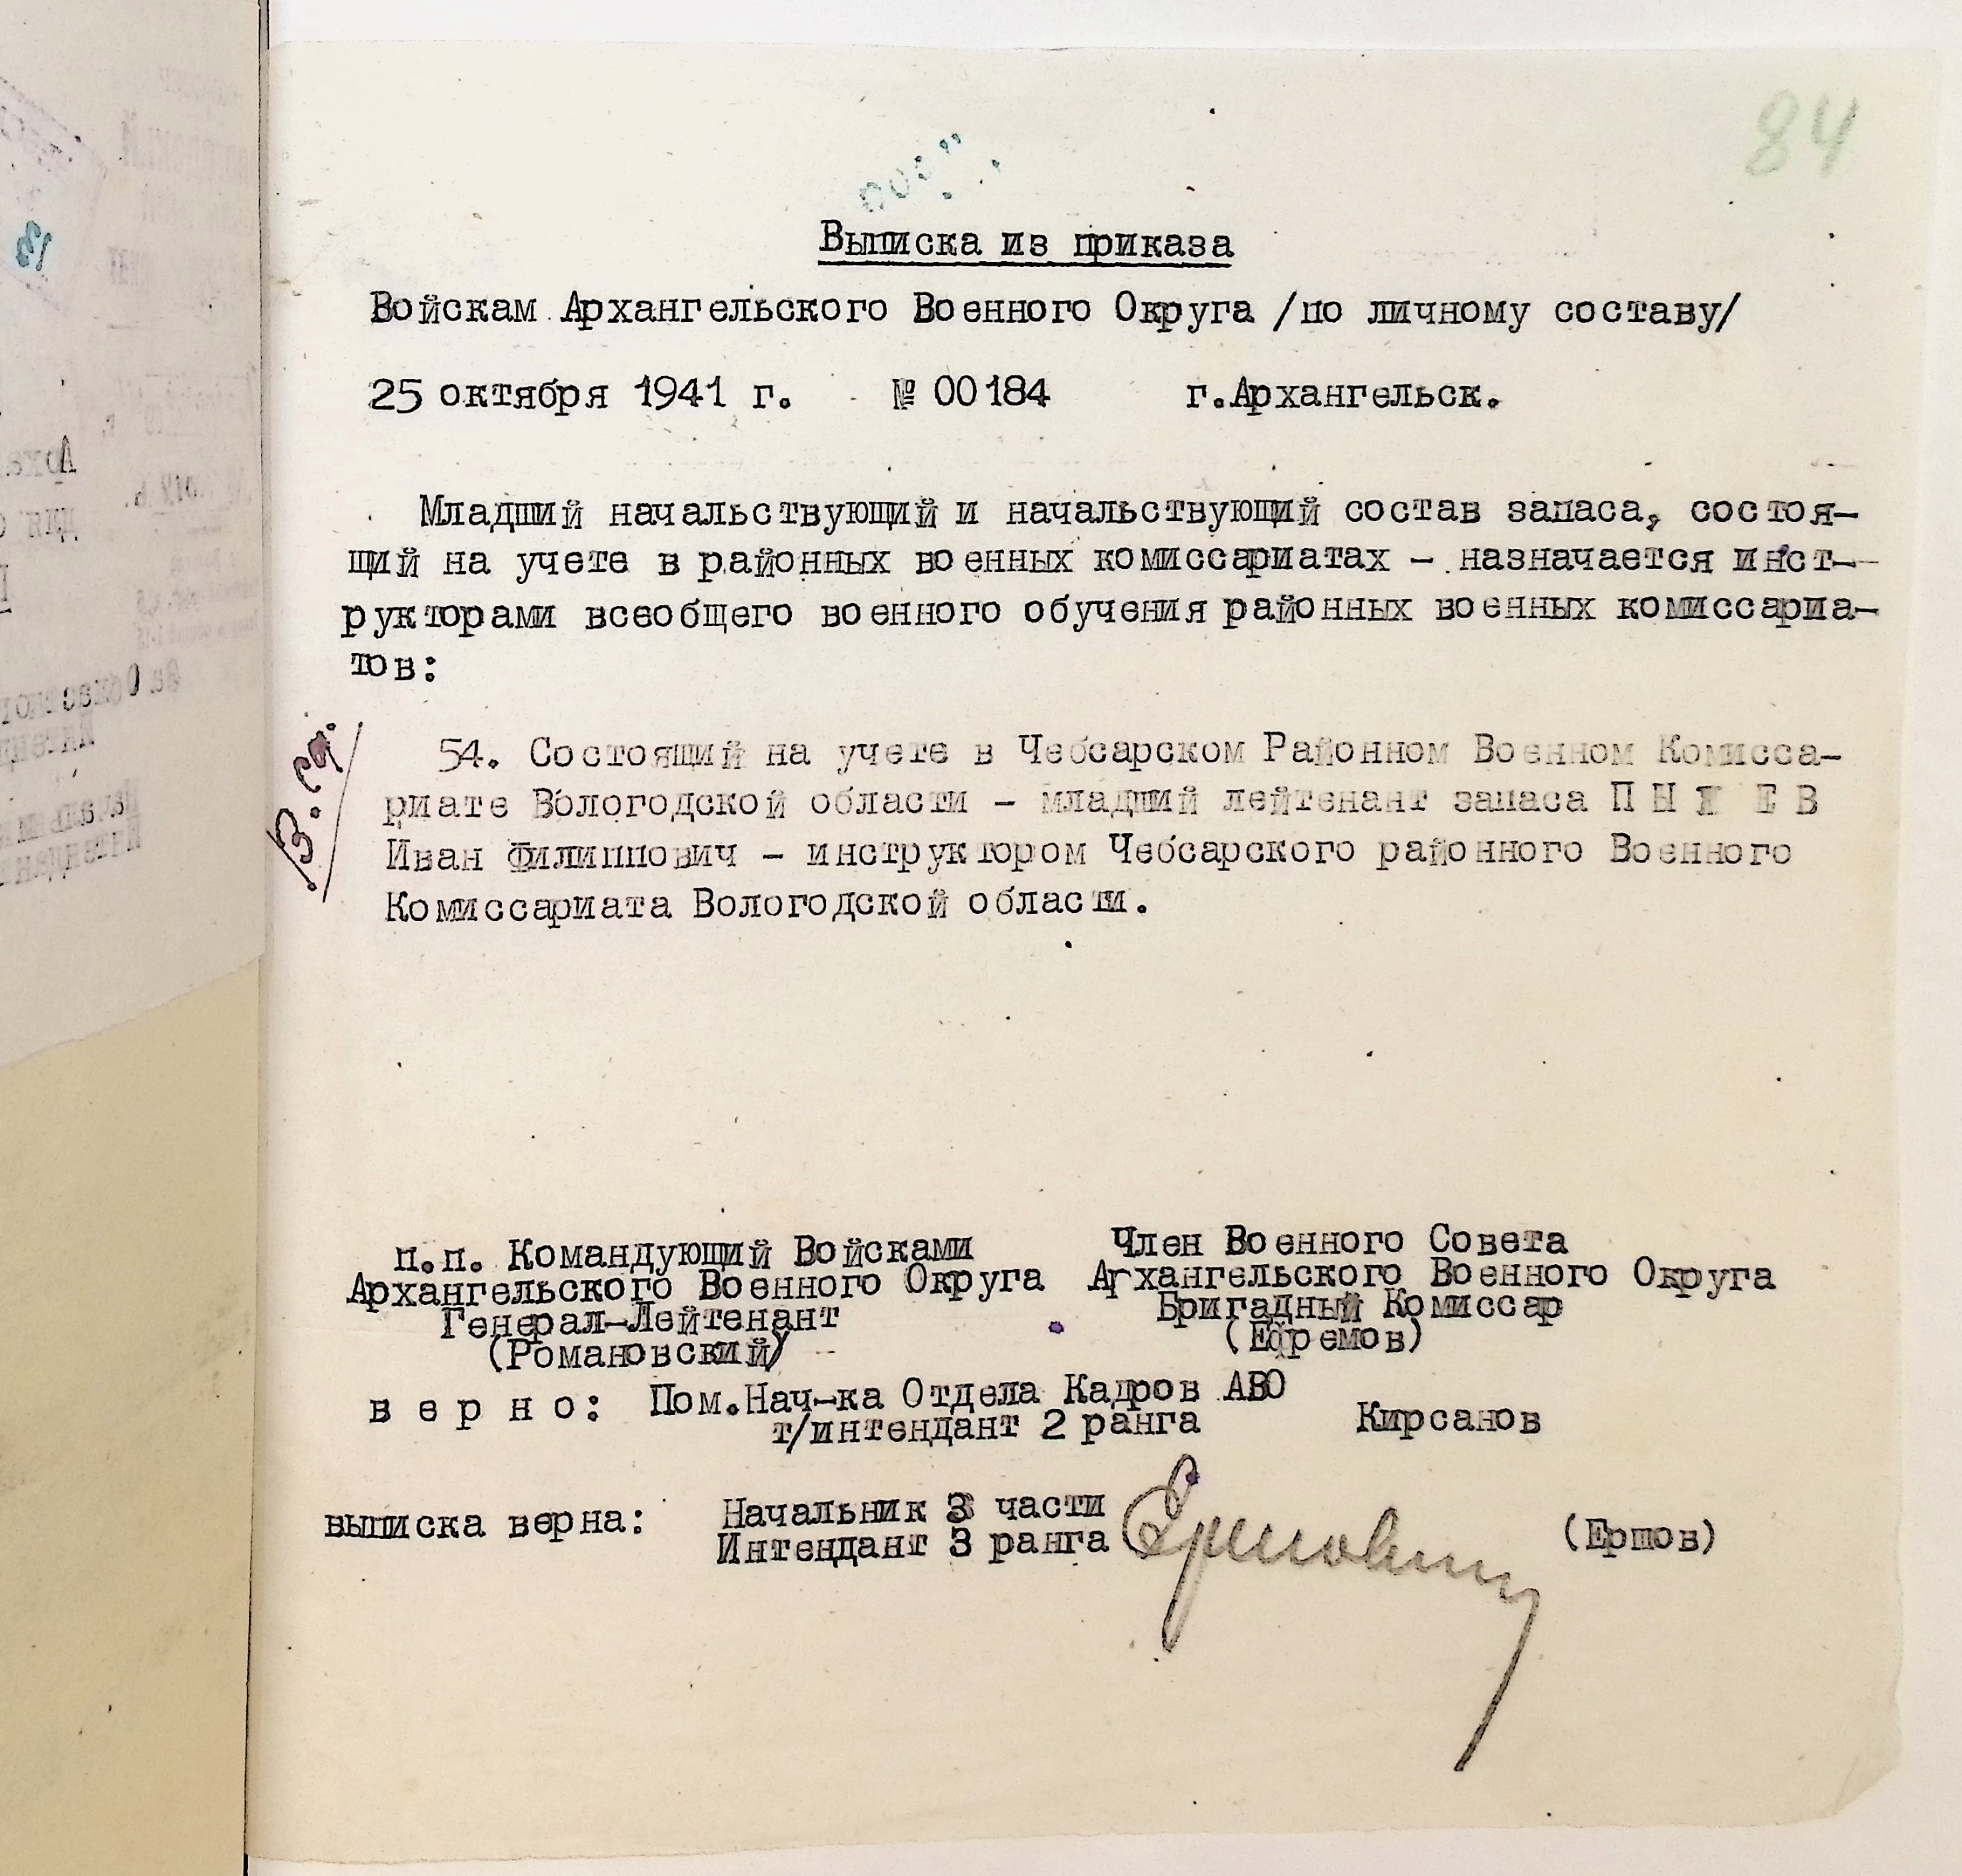 84
Выписка из приказа
Войскам Архангельского Военного Округа /по личному составу/
25 октября 1941 г. № 00184 г.Архангельск.
Младший начальствующий и начальствующий состав запаса, состоя-
щий на учете в районных военных комиссариатах - назначается инст-
рукторами всеобщего военного обучения районных военных комиссариа-
тов:
54. Состоящий на учете в Чебсарском Районном Военном Комисса-
риате Вологодской области - младший лейтенант запаса
Иван Филиппович - инструктором Чебсарского районного Военного
Комиссариата Вологодской области.
п.п. Командующий Войсками
Архангельского Военного Округа
Генерал-Лейтенант
(Романовский)
Член Военного Совета
Архангельского Военного Округа
Бригадный Комиссар
(Ефремов)
в е р н о: Пом.Нач-ка Отдела Кадров АВО
т/интендант 2 ранга Кирсанов
выписка верна: Начальник 3 части
Интендант 3 ранга (Ершов)